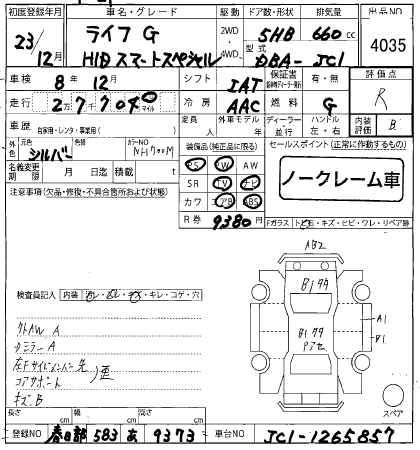 初度登録年月 車名・グレード 駆動 ドア数・形状 排気量 出品NO
23/12月 ライフ G 2WD 5HB 660cc 4035
HID スマートスペシャル 4WD 型式 DBA-JC1
車検 8年12月 シフト IAT 保証書 有・無 評価点
走行 2万7千704 マイル 冷房 AAC 燃料 G R
車歴 自家用・レンタ・事業用( ) 定員 人 外車モデル 年 ディーラー 並行 ハンドル 左・右 内装評価 B
外色 元色 シルバー 色替 カラーNO NH700M 装備品(純正品に限る) セールスポイント(正常に作動するもの)
名義変更期限 月 日迄 積載 t PS PW AW
注意事項(欠品・修復・不具合箇所および状態) SR TV ナビ ノークレーム車
カワ エアB ABS
R券 9380円 Fガラス トビ石・キズ・ヒビ・ワレ・リペア跡
AB2
検査員記入 内装 汚レ・凹レ・キズ・キレ・コゲ・穴 B1タタ
外AW A A1
ミラーA B1タタ B1
左Fサイドメンバー先 歪 Pアセ
コアサポート
キズB スペア
長さ cm 幅 cm 高さ cm
登録NO 春日部 583 あ 9373 車台NO JC1-1265857